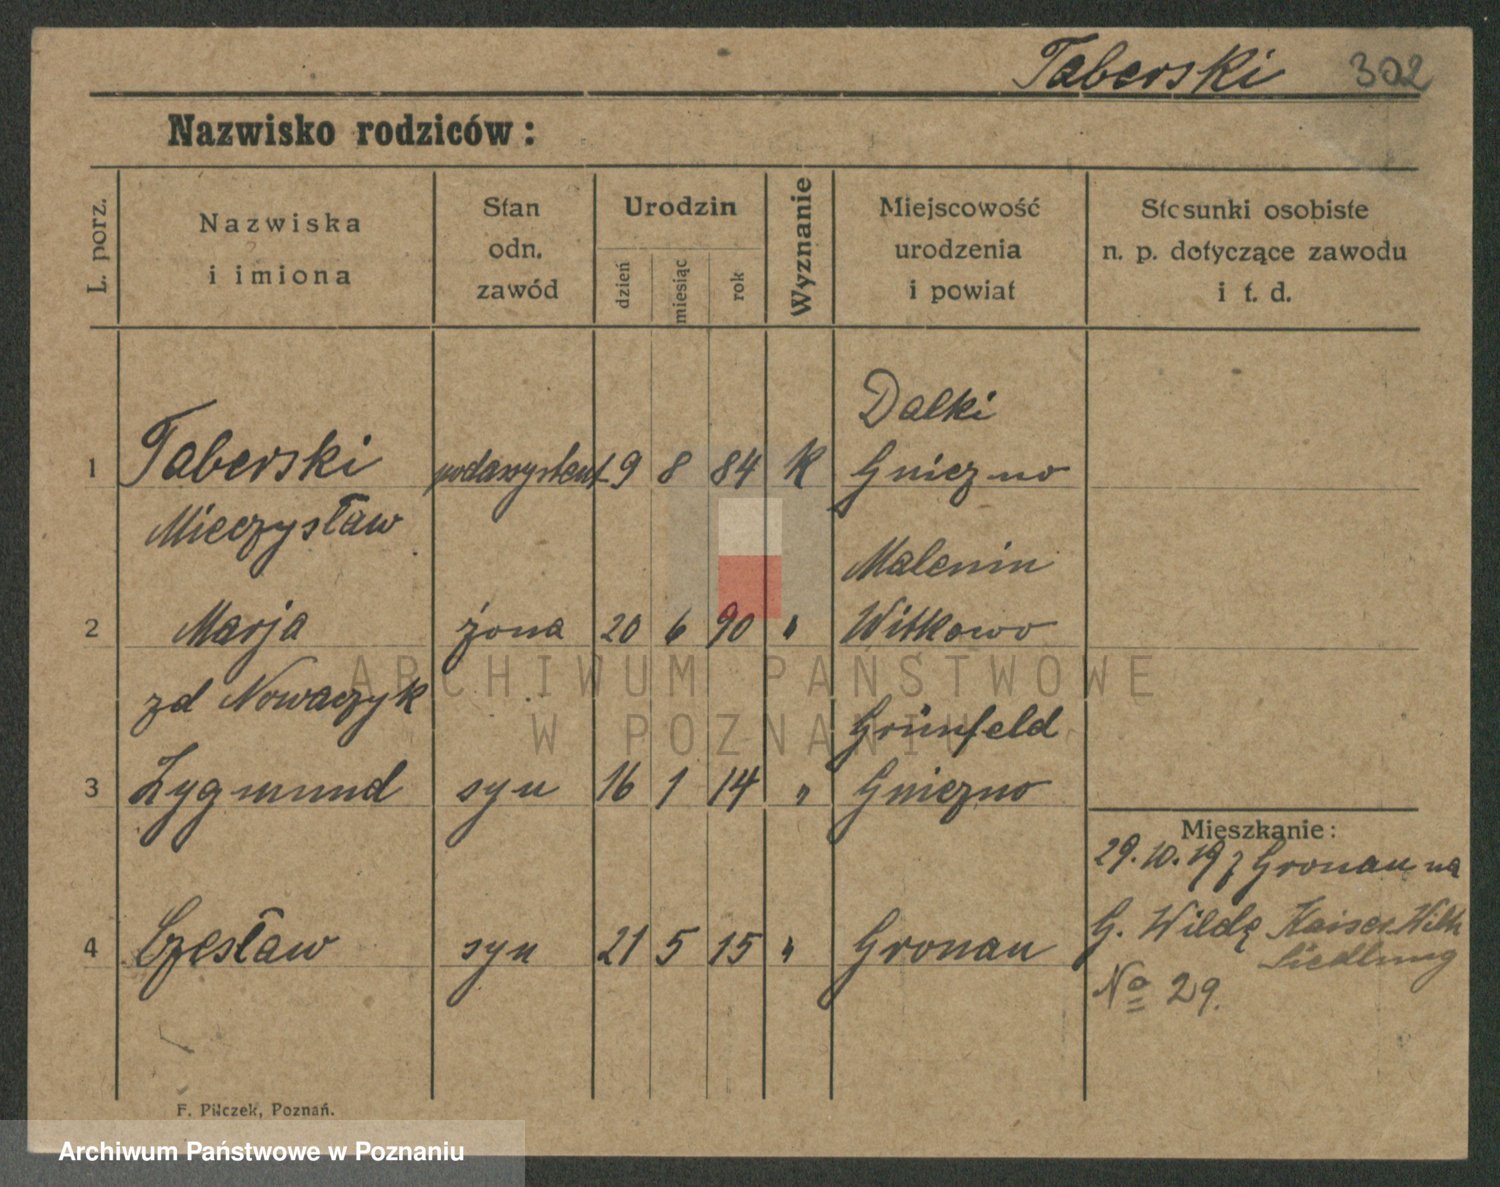 Taberski 302
Nazwisko rodziców:
L. porz.
Nazwiska
i imiona
Stan
odn.
zawód
Urodzin
dzień
miesiąc
rok
Wyznanie
Miejscowość
urodzenia
i powiat
Stosunki osobiste
n. p. dotyczące zawodu
i t. d.
Dalki
1 Taberski podasystent 9 8 84 K Gniezno
Mieczysław
Malenin
2 Marja żona 20 6 90 " Witkowo
zd Nowaczyk
Grünfeld
3 Zygmund syn 16 1 14 " Gniezno
4 Czesław syn 21 5 15 " Gronau
Mieszkanie:
29.10.19 z Gronau na
G. Wildę Kaiser Wilh
Siedlung
No 29.
F. Pilczek, Poznań.
ARCHIWUM PAŃSTWOWE
W POZNANIU
Archiwum Państwowe w Poznaniu